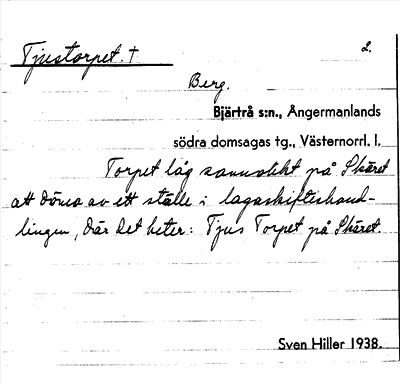 Tjustorpet. † 2.
Berg.
Bjärtrå s:n., Ångermanlands
södra domsagas tg., Västernorrl. l.
Torpet låg sannolikt på Skäret
att döma av ett ställe i lagaskifteshand-
lingen, där det heter: Tjus Torpet på Skäret.
Sven Hiller 1938.